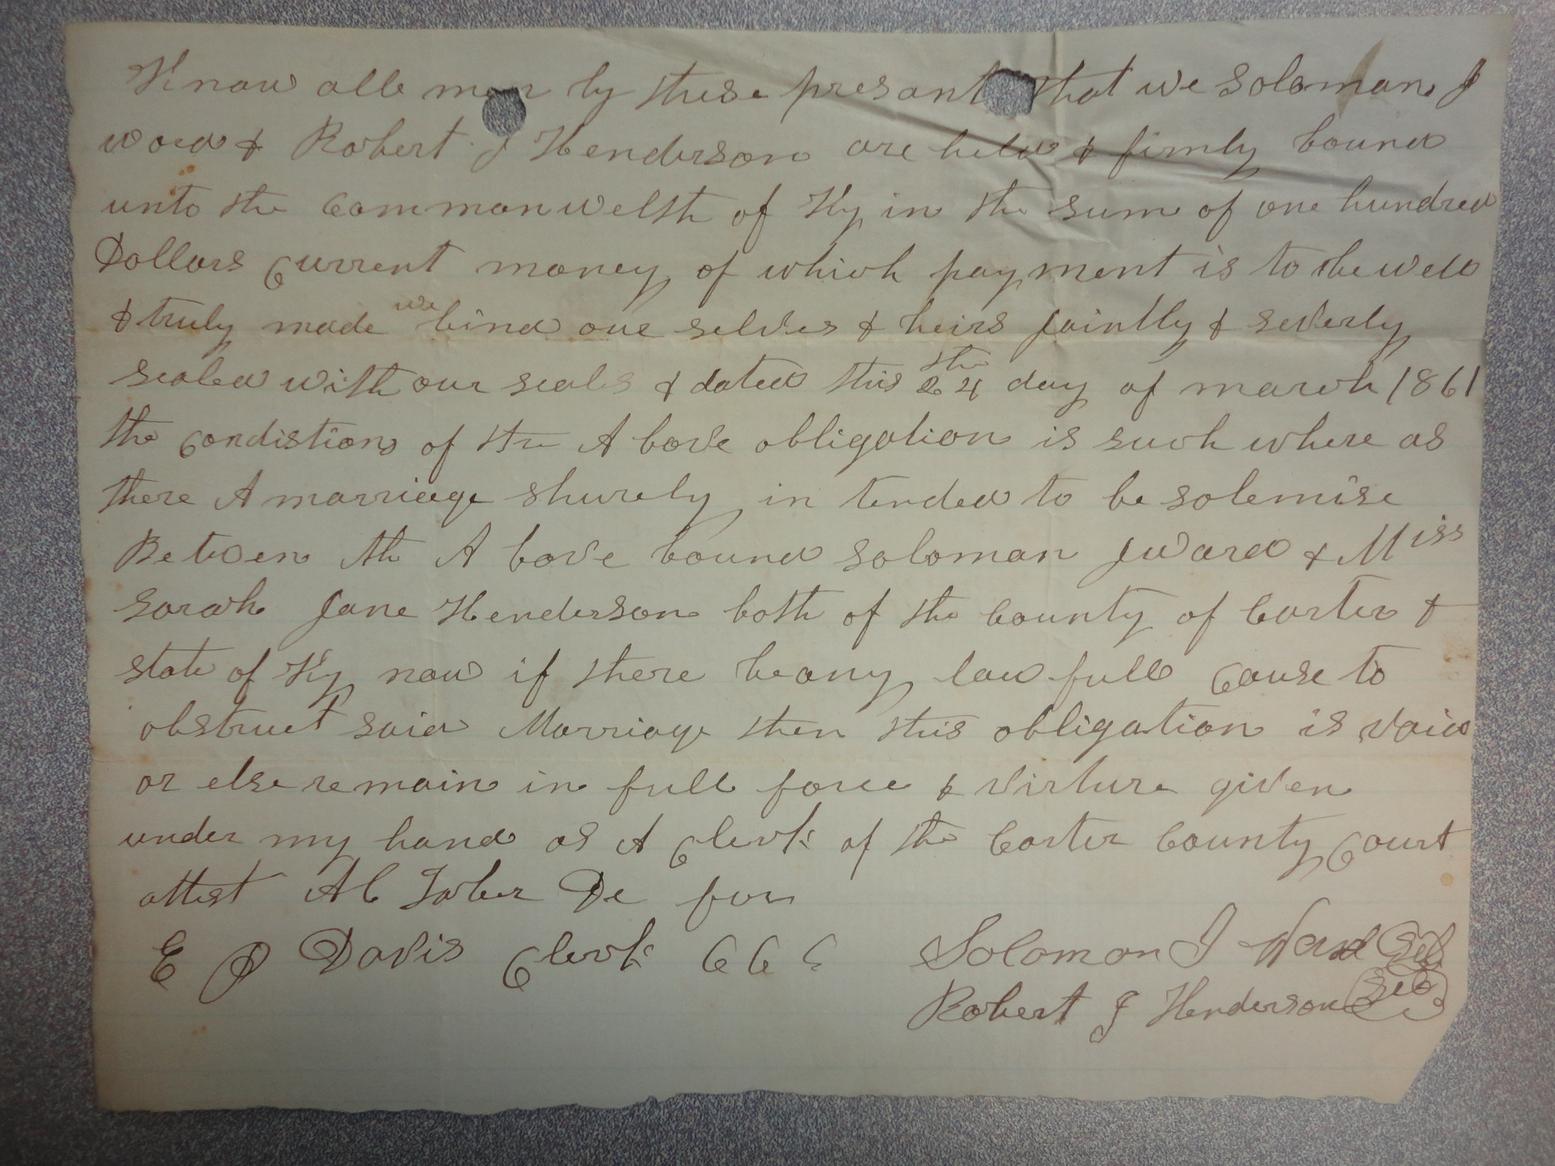 Know alle men by these presant that we Soloman J
Word & Robert J Henderson are held & firmly bound
unto the Commonwelth of Ky in the sum of one hundred
Dollars Current money of which payment is to be well
& truly made we bind our selves & heirs jointly & severly
sealed with our seals & dated this the 24 day of march 1861
the condistion of the A bove obligation is such where as
there A marriage shurely in tended to be solemise
Between the A bove bound Soloman J Ward & Miss
Sarah Jane Henderson both of the County of Carter &
state of Ky now if there be any law full cause to
obstruct said Marriage then this obligation is void
or else remain in full force & virture given
under my hand as A Clerk of the Carter County Court
attest A C Tober De for
E P Davis Clerk C C C Solomon J Ward Sel
Robert J Henderson Sel